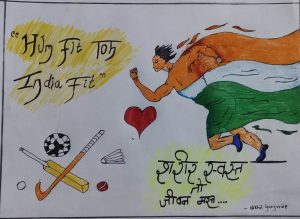 "Hum Fit Toh
India Fit"
शरीर स्वस्त
तो
जीवन मस्त ....